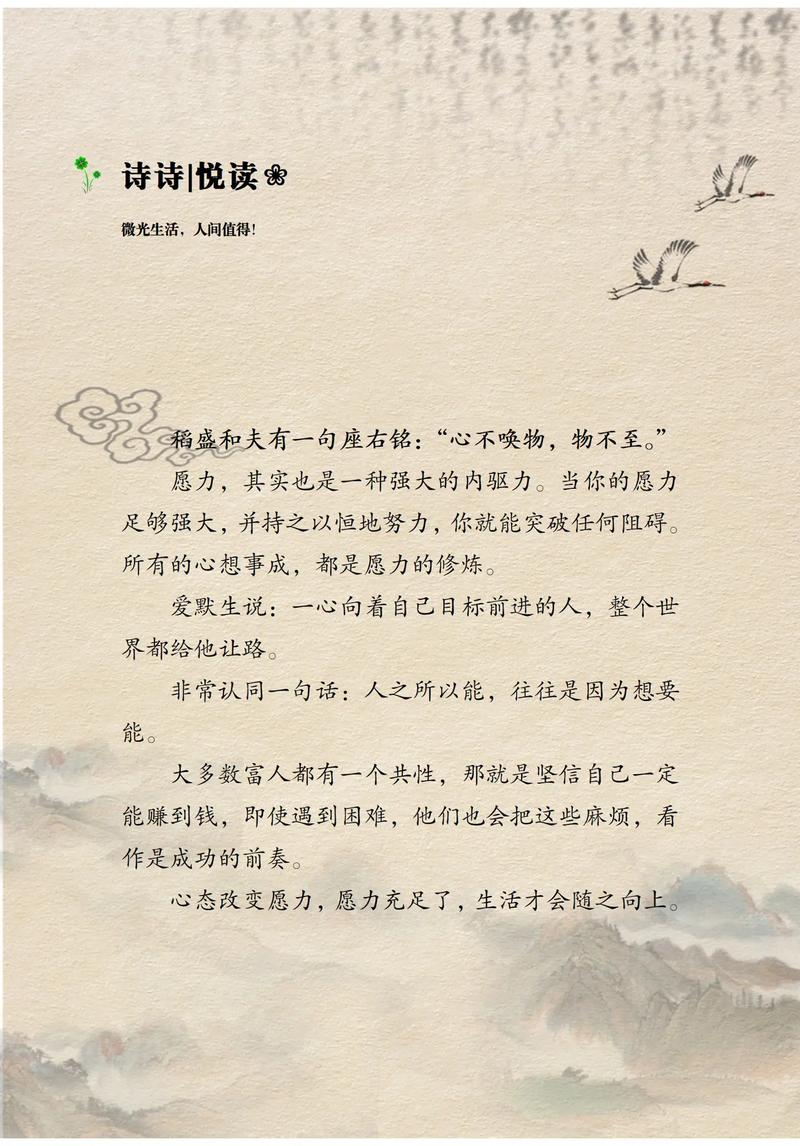 诗诗|悦读
微光生活，人间值得！
稻盛和夫有一句座右铭：“心不唤物，物不至。”
愿力，其实也是一种强大的内驱力。当你的愿力
足够强大，并持之以恒地努力，你就能突破任何阻碍。
所有的心想事成，都是愿力的修炼。
爱默生说：一心向着自己目标前进的人，整个世
界都给他让路。
非常认同一句话：人之所以能，往往是因为想要
能。
大多数富人都有一个共性，那就是坚信自己一定
能赚到钱，即使遇到困难，他们也会把这些麻烦，看
作是成功的前奏。
心态改变愿力，愿力充足了，生活才会随之向上。